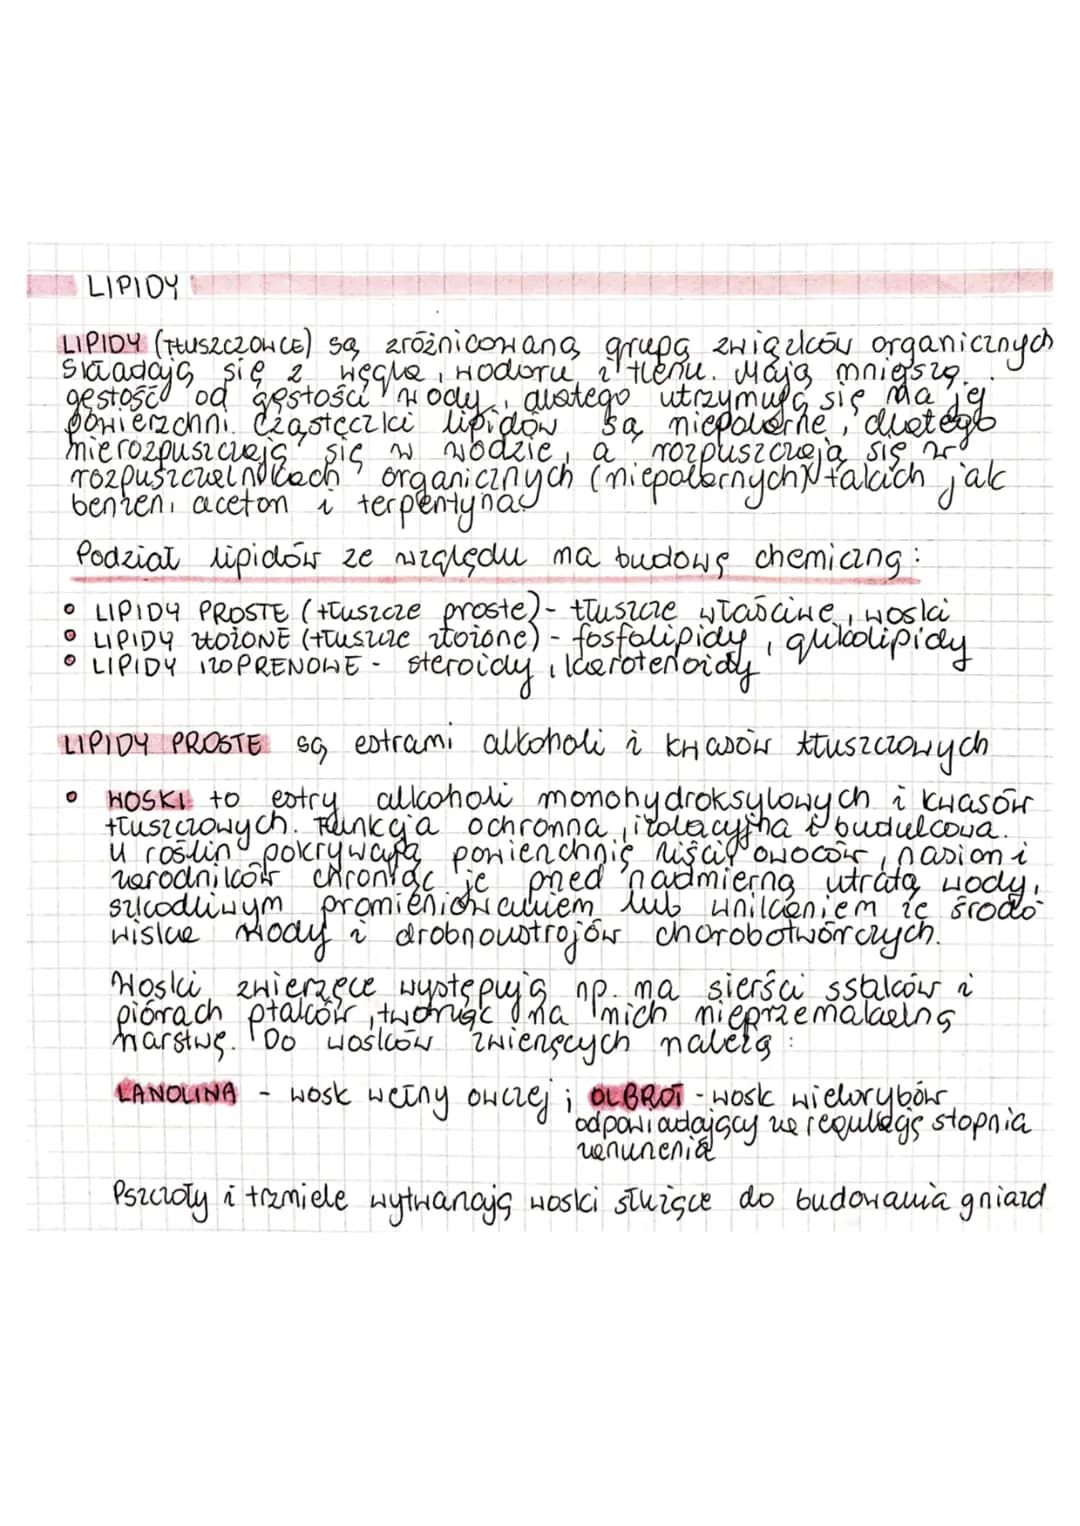 LIPIDY
LIPIDY (TŁUSZCZOWCE) są zróżnicowaną grupą związków organicznych
Składają się z węgla, wodoru i tlenu. Mają mniejszą
gęstość od gęstości wody, dlatego utrzymują się na jej
powierzchni. Cząsteczki lipidów są niepolarne, dlatego
nierozpuszczają się w wodzie, a rozpuszczają się w
rozpuszczalnikach organicznych (niepolarnych) takich jak
benzen, aceton i terpentyna.
Podział lipidów ze względu na budowę chemiczną:
• LIPIDY PROSTE (tłuszcze proste) - tłuszcze właściwe, woski
• LIPIDY ZŁOŻONE (tłuszcze złożone) - fosfolipidy, glikolipidy
• LIPIDY IZOPRENOWE - steroidy, karotenoidy
LIPIDY PROSTE są estrami alkoholi i kwasów tłuszczowych
• WOSKI to estry alkoholi monohydroksylowych i kwasów
tłuszczowych. Funkcja ochronna, izolacyjna i budulcowa.
U roślin pokrywają powierzchnię liści, owoców, nasion i
zarodników chroniąc je przed nadmierną utratą wody,
szkodliwym promieniowaniem lub wnikaniem ze środo
wiska wody i drobnoustrojów chorobotwórczych.
Woski zwierzęce występują np. na sierści ssaków i
piórach ptaków, tworząc na nich nieprzemakalną
warstwę. Do wosków zwierzęcych należą:
LANOLINA - wosk wełny owczej; OLBROT - wosk wielorybów
odpowiadający za regulację stopnia
zanurzenia
Pszczoły i trzmiele wytwarzają woski służące do budowania gniazd